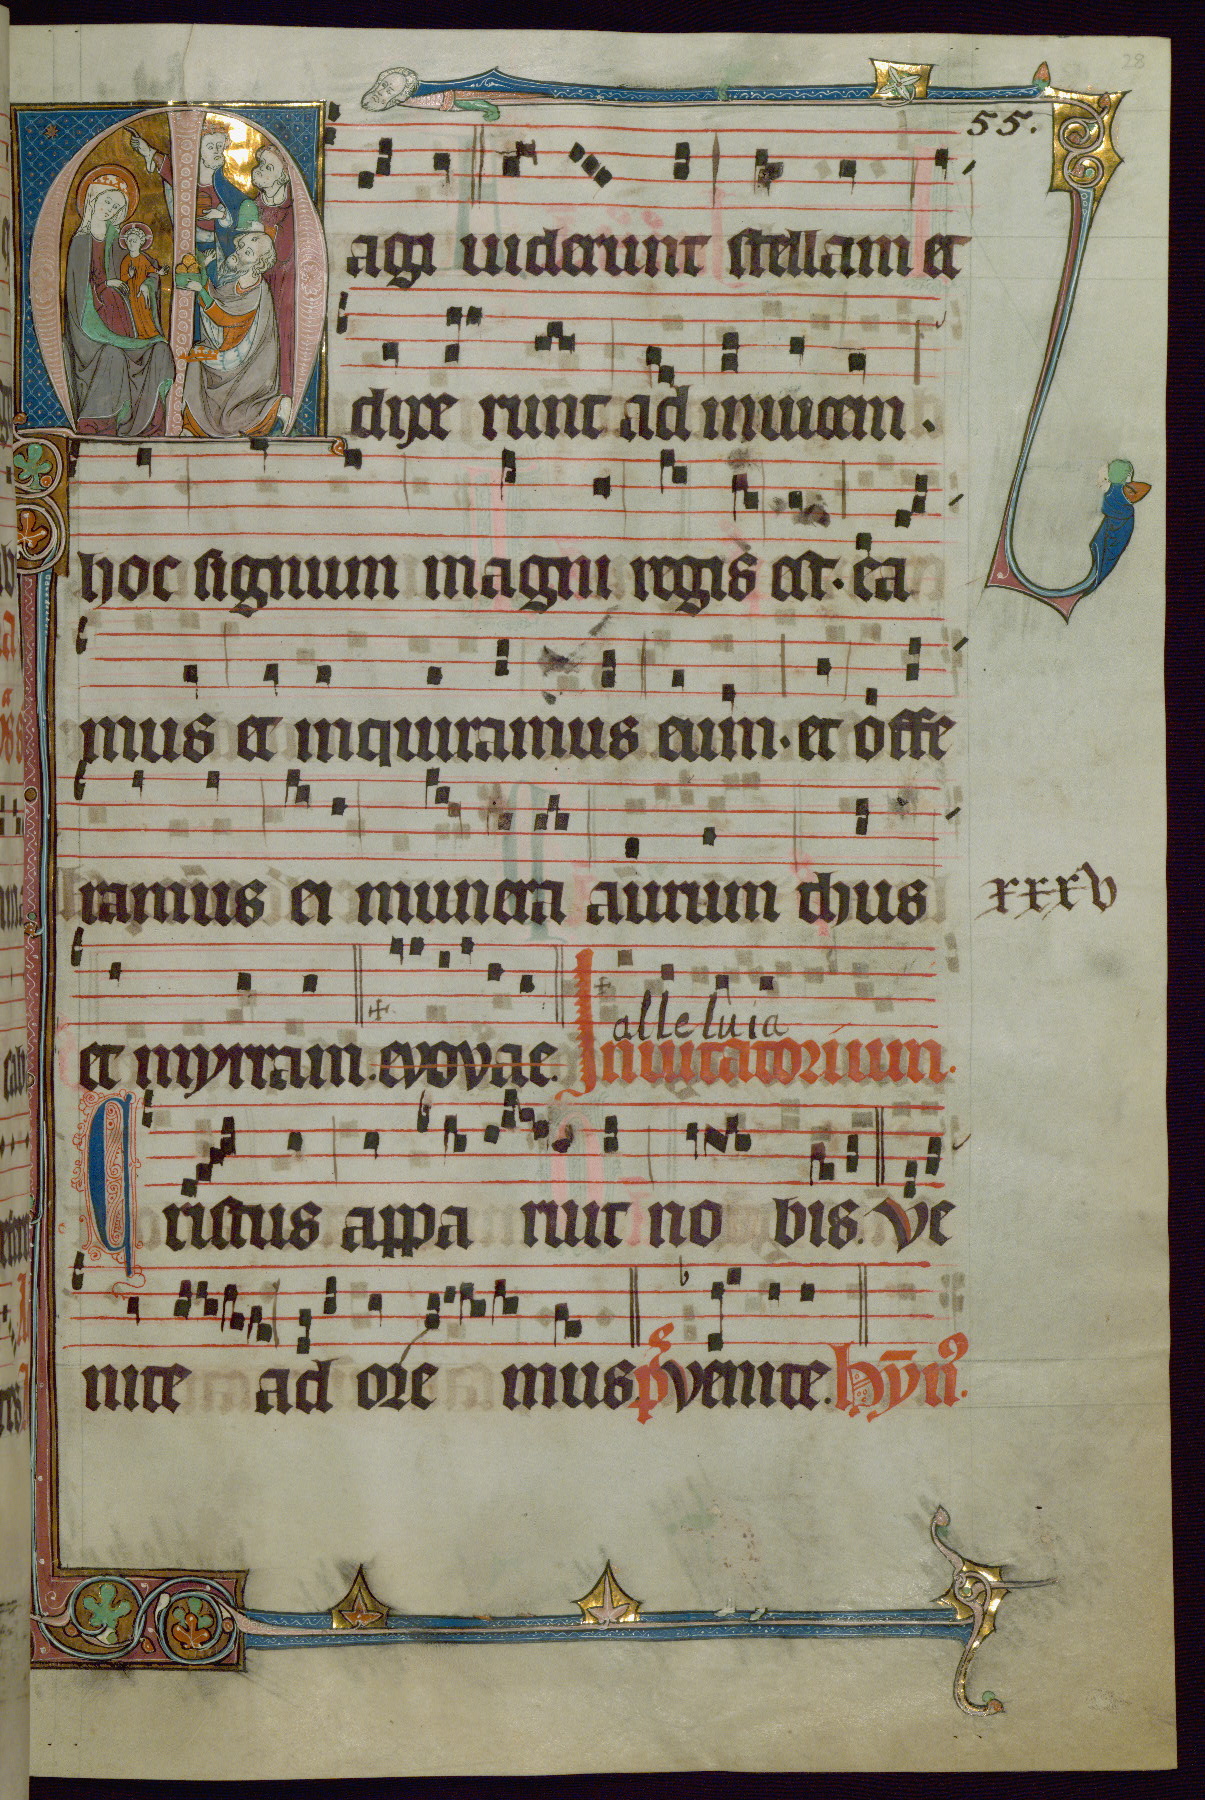 28
55.
agi uiderunt stellam et
dixe runt ad inuicem.
hoc signum magni regis est. ea
mus et inquiramus eum. et offe
ramus ei munera aurum thus
xxxv
alleluia
et myrram. evovae. Inuitatorium.
ristus appa ruit no bis. Ve
nite ad ore mus. ps venite. hyn